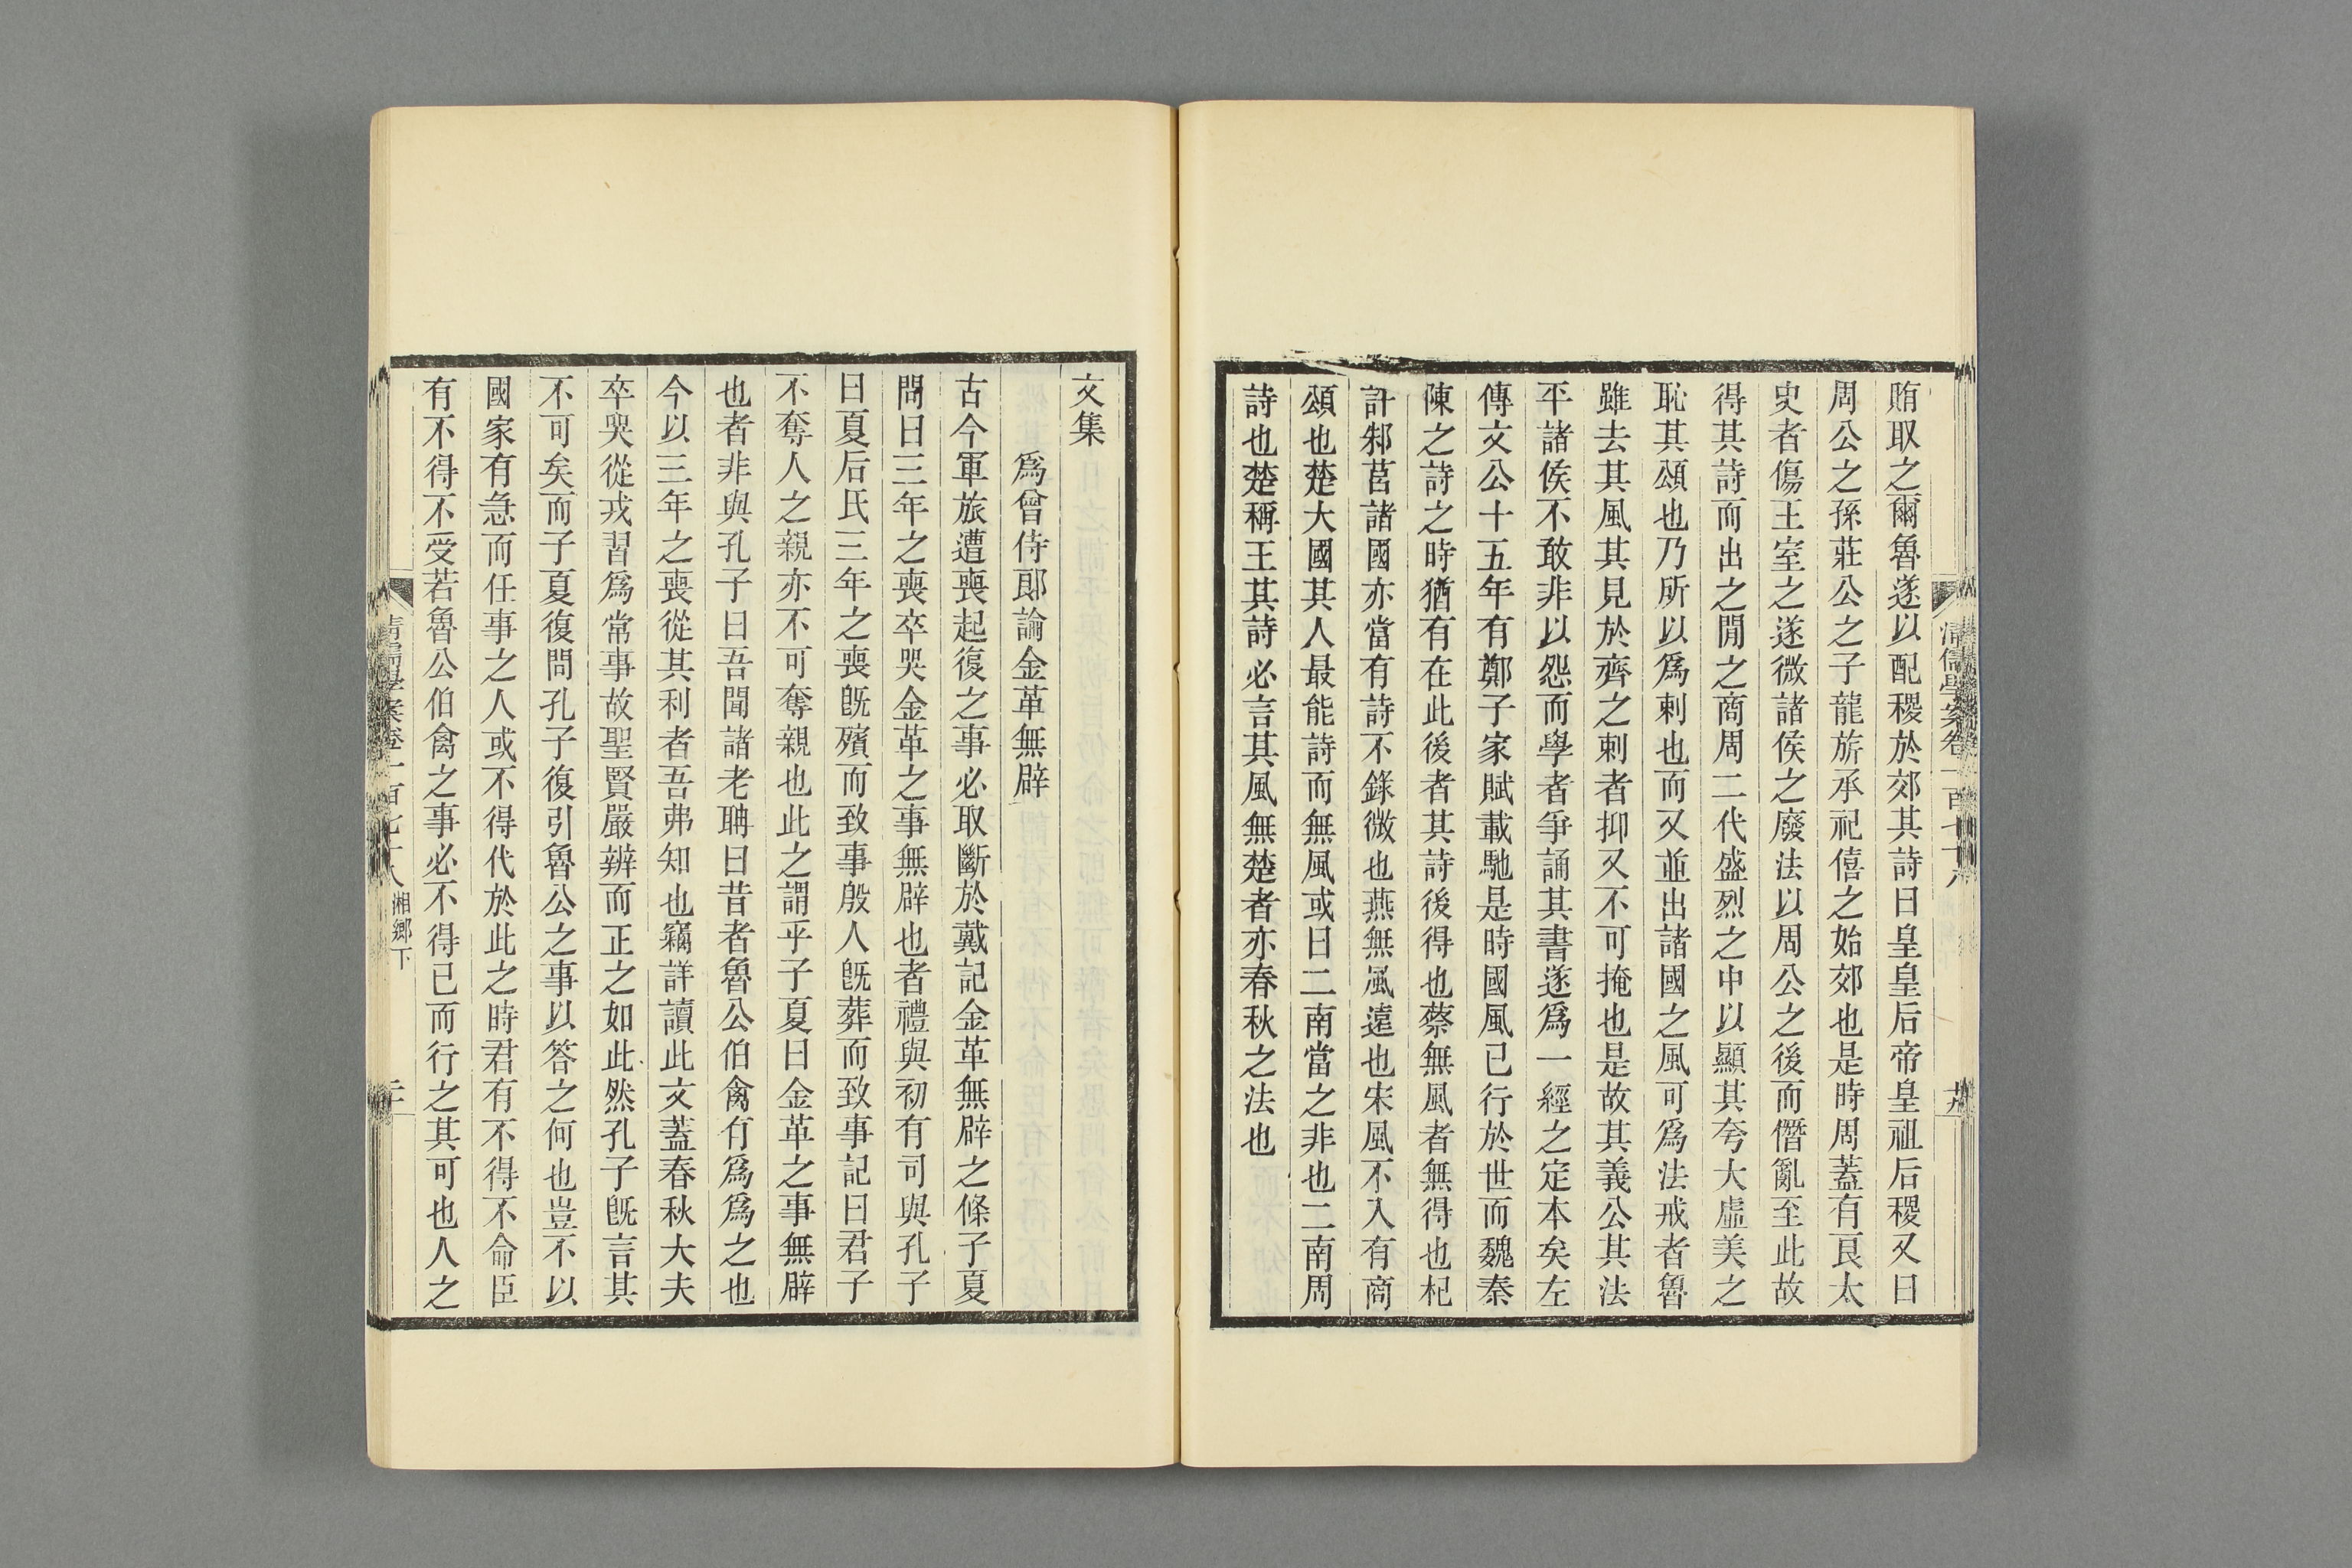 賄取之爾魯遂以配稷於郊其詩曰皇皇后帝皇祖后稷又曰
周公之孫莊公之子龍旂承祀僖之始郊也是時周蓋有良太
史者傷王室之遂微諸侯之廢法以周公之後而僭亂至此故
得其詩而出之閒之商周二代盛烈之中以顯其夸大虛美之
恥其頌也乃所以爲刺也而又並出諸國之風可爲法戒者魯
雖去其風其見於齊之刺者抑又不可掩也是故其義公其法
平諸侯不敢非以怨而學者爭誦其書遂爲一經之定本矣左
傳文公十五年有鄭子家賦載馳是時國風已行於世而魏秦
陳之詩之時猶有在此後者其詩後得也蔡無風者無得也杞
許邾莒諸國亦當有詩不錄微也燕無風遠也宋風不入有商
頌也楚大國其人最能詩而無風或曰二南當之非也二南周
詩也楚稱王其詩必言其風無楚者亦春秋之法也
文集
爲曾侍郎論金革無辟
古今軍旅遭喪起復之事必取斷於戴記金革無辟之條子夏
問曰三年之喪卒哭金革之事無辟也者禮與初有司與孔子
曰夏后氏三年之喪旣殯而致事殷人旣葬而致事記曰君子
不奪人之親亦不可奪親也此之謂乎子夏曰金革之事無辟
也者非與孔子曰吾聞諸老聃曰昔者魯公伯禽有爲爲之也
今以三年之喪從其利者吾弗知也竊詳讀此文蓋春秋大夫
卒哭從戎習爲常事故聖賢嚴辨而正之如此然孔子旣言其
不可矣而子夏復問孔子復引魯公之事以答之何也豈不以
國家有急而任事之人或不得代於此之時君有不得不命臣
有不得不受若魯公伯禽之事必不得已而行之其可也人之
清儒學案卷一百七十八 湘鄉下